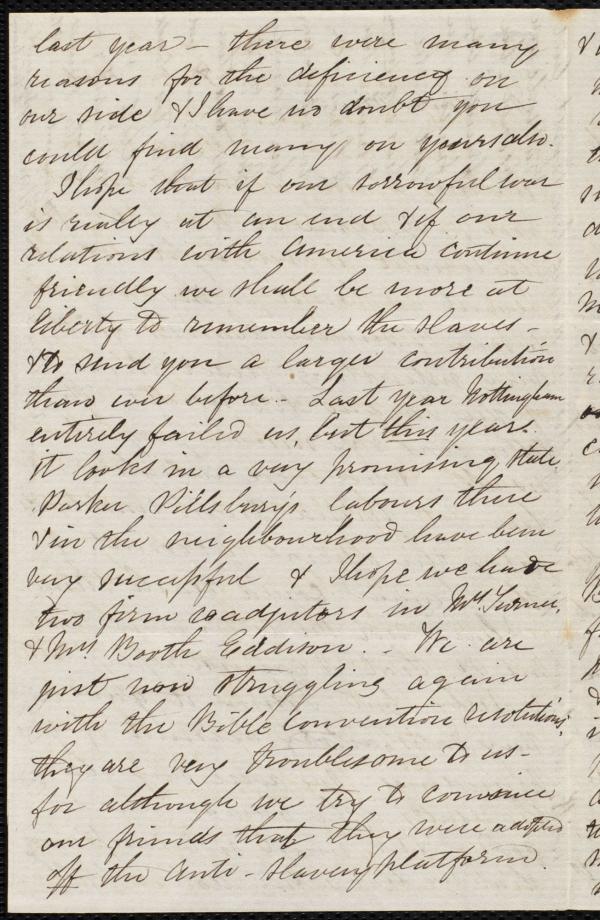 last year - there were many
reasons for the deficiency on
our side & I have no doubt you
could find many on yours also.
I hope that if our sorrowful war
is really at an end & if our
relations with America continue
friendly we shall be more at
liberty to remember the slaves -
& to send you a larger contribution
than ever before. - Last year Nottingham
entirely failed us, but this year
it looks in a very promising state
Parker Pillsbury's labours there
& in the neighbourhood have been
very successful & I hope we have
two firm coadjutors in Mrs Turner,
& Mrs Booth Eddison. - We are
just now struggling again
with the Bible convention resolutions,
they are very troublesome to us -
for although we try to convince
our friends that they were adopted
off the Anti-Slavery platform.